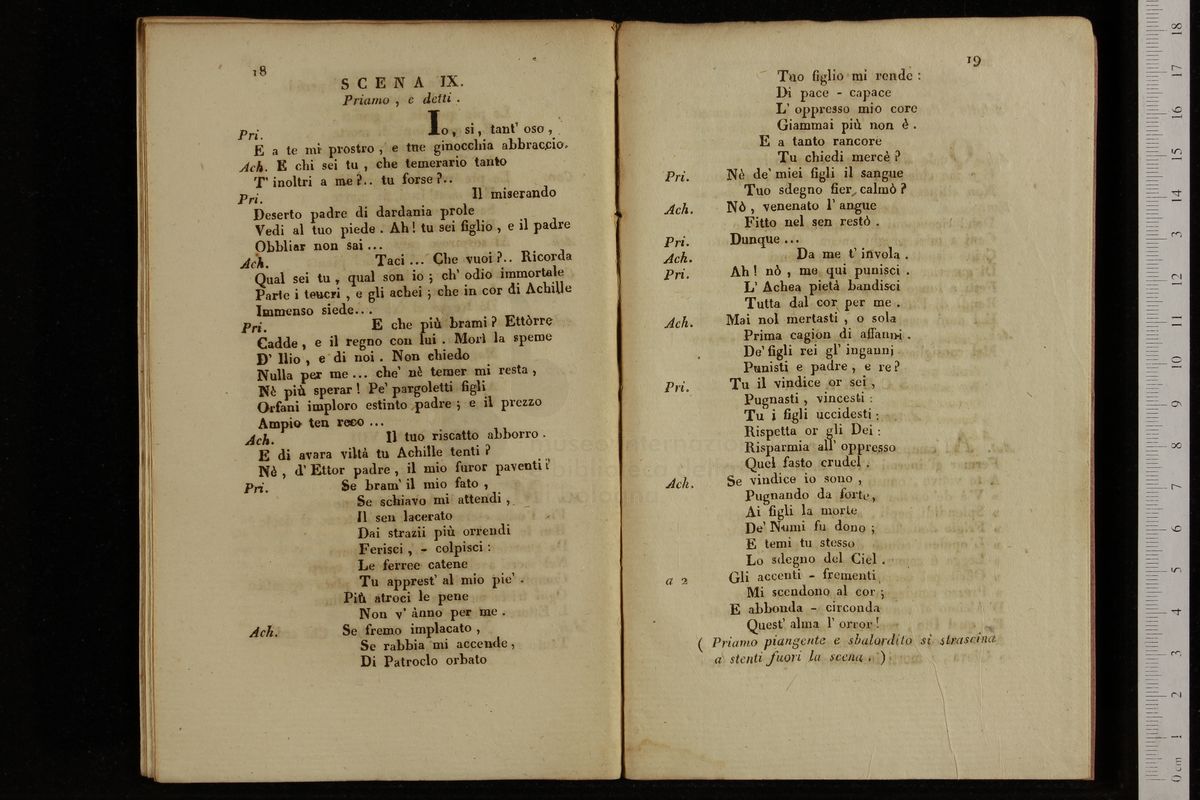 18
SCENA IX.
Priamo , e detti .
Pri. Io, si, tant' oso ,
E a te mi prostro , e tue ginocchia abbraccio.
Ach. E chi sei tu , che temerario tanto
T' inoltri a me ?.. tu forse ?..
Pri. Il miserando
Deserto padre di dardania prole
Vedi al tuo piede . Ah! tu sei figlio , e il padre
Obbliar non sai ...
Ach. Taci ... Che vuoi ?.. Ricorda
Qual sei tu , qual son io ; ch' odio immortale
Parte i teucri , e gli achei ; che in cor di Achille
Immenso siede...
Pri. E che più brami ? Ettòrre
Cadde , e il regno con lui . Morì la speme
D' Ilio , e di noi . Non chiedo
Nulla per me ... che' nè temer mi resta ,
Nè più sperar ! Pe' pargoletti figli
Orfani imploro estinto padre ; e il prezzo
Ampio ten reco ...
Ach. Il tuo riscatto abborro .
E di avara viltà tu Achille tenti ?
Nè , d' Ettor padre , il mio furor paventi ?
Pri. Se bram' il mio fato ,
Se schiavo mi attendi ,
Il sen lacerato
Dai strazii più orrendi
Ferisci , - colpisci :
Le ferree catene
Tu apprest' al mio pie' .
Più atroci le pene
Non v' ànno per me .
Ach. Se fremo implacato ,
Se rabbia mi accende ,
Di Patroclo orbato
19
Tuo figlio mi rende :
Di pace - capace
L' oppresso mio core
Giammai più non è .
E a tanto rancore
Tu chiedi mercè ?
Pri. Nè de' miei figli il sangue
Tuo sdegno fier calmò ?
Ach. Nò , venenato l' angue
Fitto nel sen restò .
Pri. Dunque ...
Ach. Da me t' invola .
Pri. Ah ! nò , me qui punisci .
L' Achea pietà bandisci
Tutta dal cor per me .
Ach. Mai nol mertasti , o sola
Prima cagion di affanni .
De' figli rei gl' inganni
Punisti e padre , e re ?
Pri. Tu il vindice or sei ,
Pugnasti , vincesti :
Tu i figli uccidesti :
Rispetta or gli Dei :
Risparmia all' oppresso
Quel fasto crudel .
Ach. Se vindice io sono ,
Pugnando da forte,
Ai figli la morte
De' Numi fu dono ;
E temi tu stesso
Lo sdegno del Ciel .
a 2 Gli accenti - frementi
Mi scendono al cor ;
E abbonda - circonda
Quest' alma l' orror !
( Priamo piangente e sbalordito si strascina
a stenti fuori la scena . )